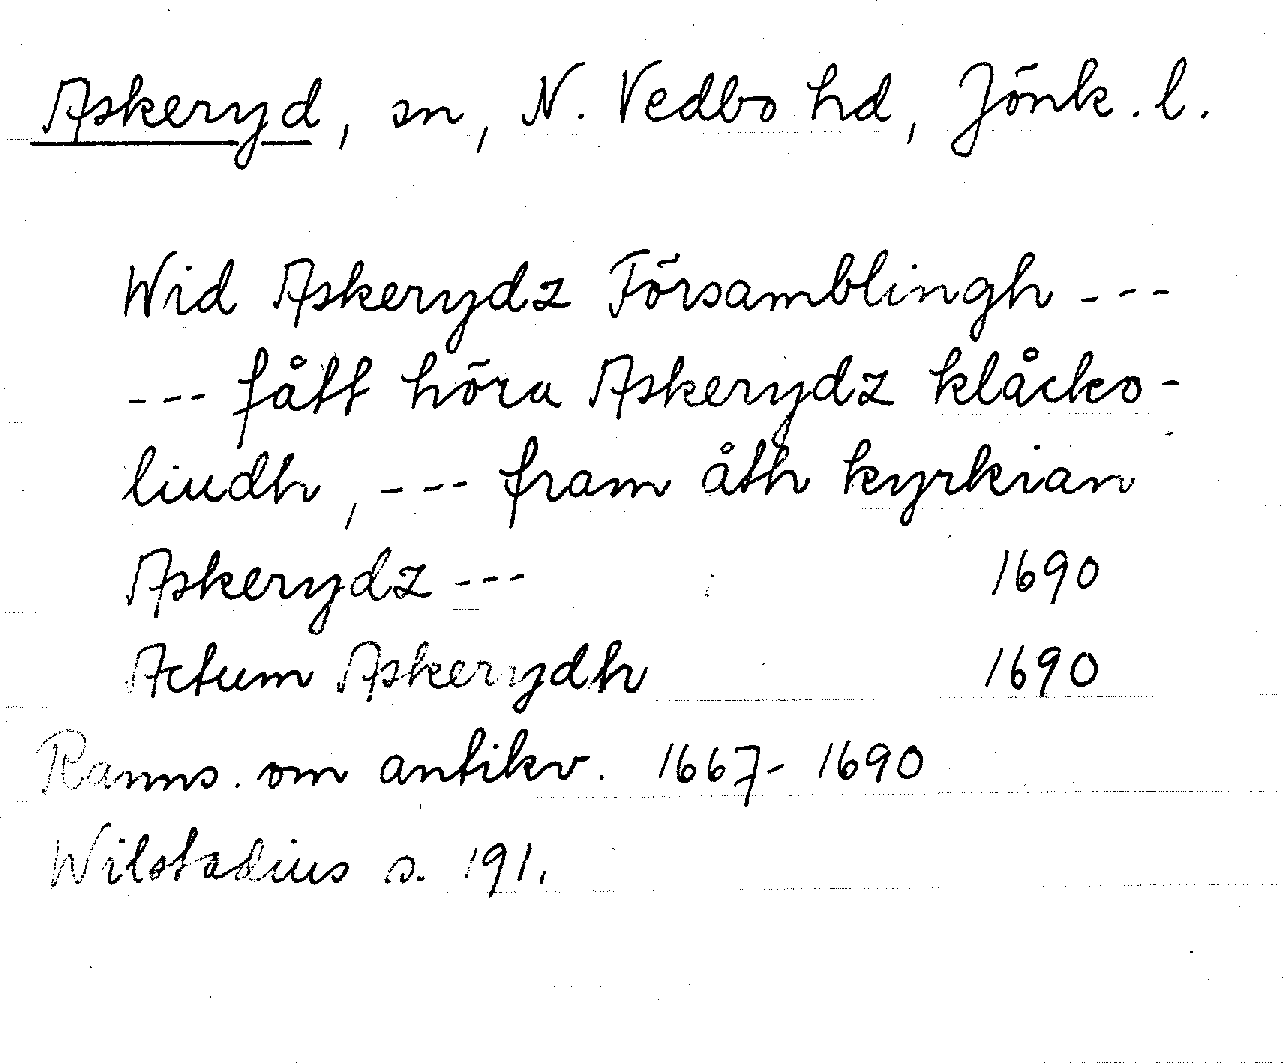 Askeryd, sn, N. Vedbo hd, Jönk. l.
Wid Askerydz Församblingh ---
--- fått höra Askerydz klåcko-
liudh, --- fram åth kyrkian
Askerydz --- 1690
Actum Askerydh 1690
Ranns. om antikv. 1667-1690
Wilstadius s. 191.